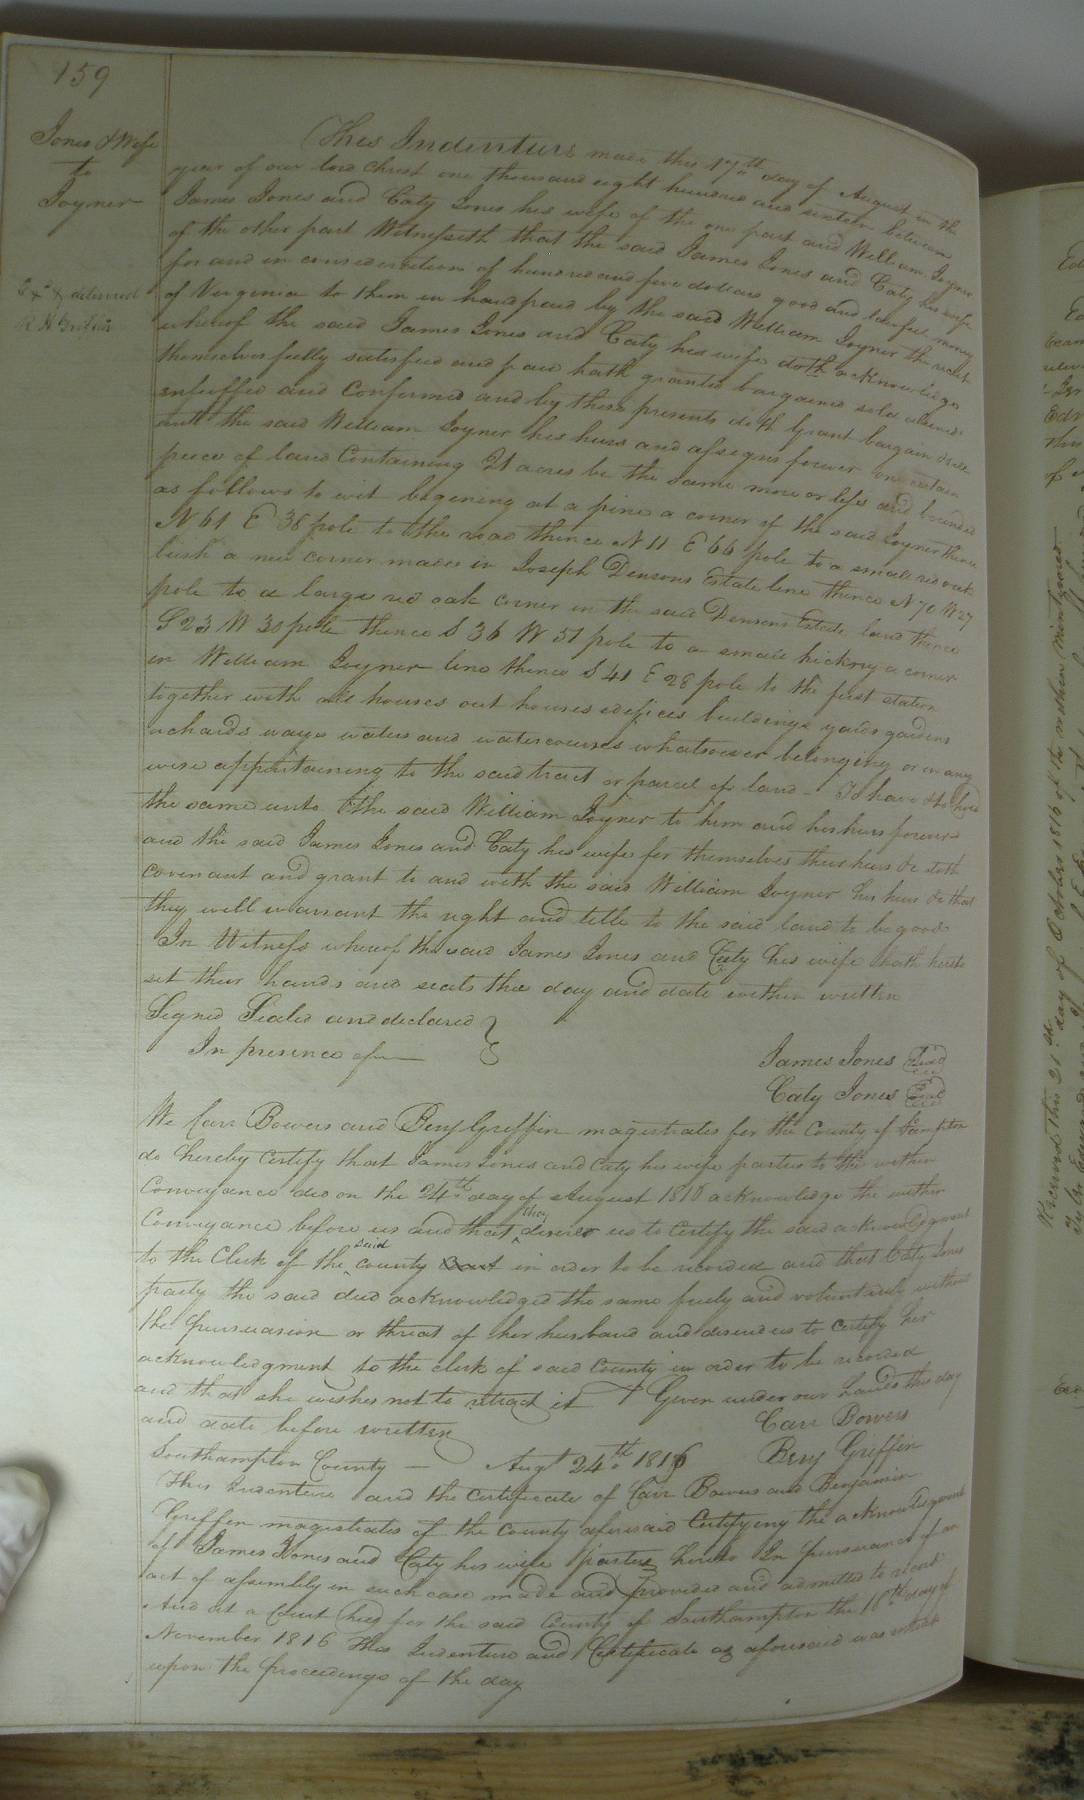 159
Jones & Wife
to
Joyner
Ex & delivered
This Indenture made this 17th day of August in the
year of our lord Christ one thousand eight hundred and sixteen between
James Jones and Caty Jones his wife of the one part and William Joyner
of the other part Witnesseth that the said James Jones and Caty his wife
for and in consideration of hundred and five dollars good and lawful money
of Virginia to them in hand paid by the said William Joyner the receit
whereof the said James Jones and Caty his wife doth acknowledge
themselves fully satisfied and paid hath granted bargained sold aliened
enfeoffed and Confirmed and by these presents doth Grant bargain & sell
unto the said William Joyner his heirs and assigns forever one certain
peece of land Containing 21 acres be the same more or less and bounded
as follows to wit begening at a pine a corner of the said Joyner thence
N 61 E 38 pole to the road thence N 11 E 66 pole to a small red oak
bush a new corner made in Joseph Densons Estate line thence N 70 W 27
pole to a large red oak corner in the said Densons Estate land thence
S 23 W 30 pole thence S 36 W 51 pole to a small hickory a corner
in William Joyner line thence S 41 E 28 pole to the first station
together with all houses out houses edifices buildings yards gardens
orchards ways waters and watercourses whatsoever belonging or in any
wise appertaining to the said tract or parcel of land - To have & to hold
the same unto the said William Joyner to him and his heirs forever
and the said James Jones and Caty his wife for themselves their heirs &c doth
covenant and grant to and with the said William Joyner his heirs &c that
they will warrant the right and title to the said land to be good
In Witness whereof the said James Jones and Caty his wife hath hereto
set their hands and seals the day and date within written
Signed Sealed and declared
In presence of
James Jones Seal
Caty Jones Seal
We Carr Bowers and Benj Griffin magistrates for the County of Sampton
do hereby Certify that James Jones and Caty his wife parties to the within
Conveyance did on the 24th day of August 1816 acknowledge the within
Conveyance before us and that they desired us to Certify the said acknowledgment
to the Clerk of the said county Court in order to be recorded and that Caty Jones
party the said deed acknowledged the same freely and voluntarily without
the persuasion or threat of her husband and desired us to Certify her
acknowledgment to the clerk of said County in order to be recorded
and that she wishes not to retract it Given under our hands this day
and date before written
Carr Bowers
Benj Griffin
Southampton County - Augt 24th 1816
This Indenture and the Certificate of Carr Bowers and Benjamin
Griffin magistrates of the County aforesaid Certifying the acknowledgment
of James Jones and Caty his wife parties hereto In pursuance of an
act of assembly in such case made and provided and admitted to record
And at a Court held for the said County of Southampton the 18th day of
November 1816 This Indenture and Certificate as aforesaid was entered
upon the proceedings of the day
Received this 21st day of October 1816 of the within mentioned